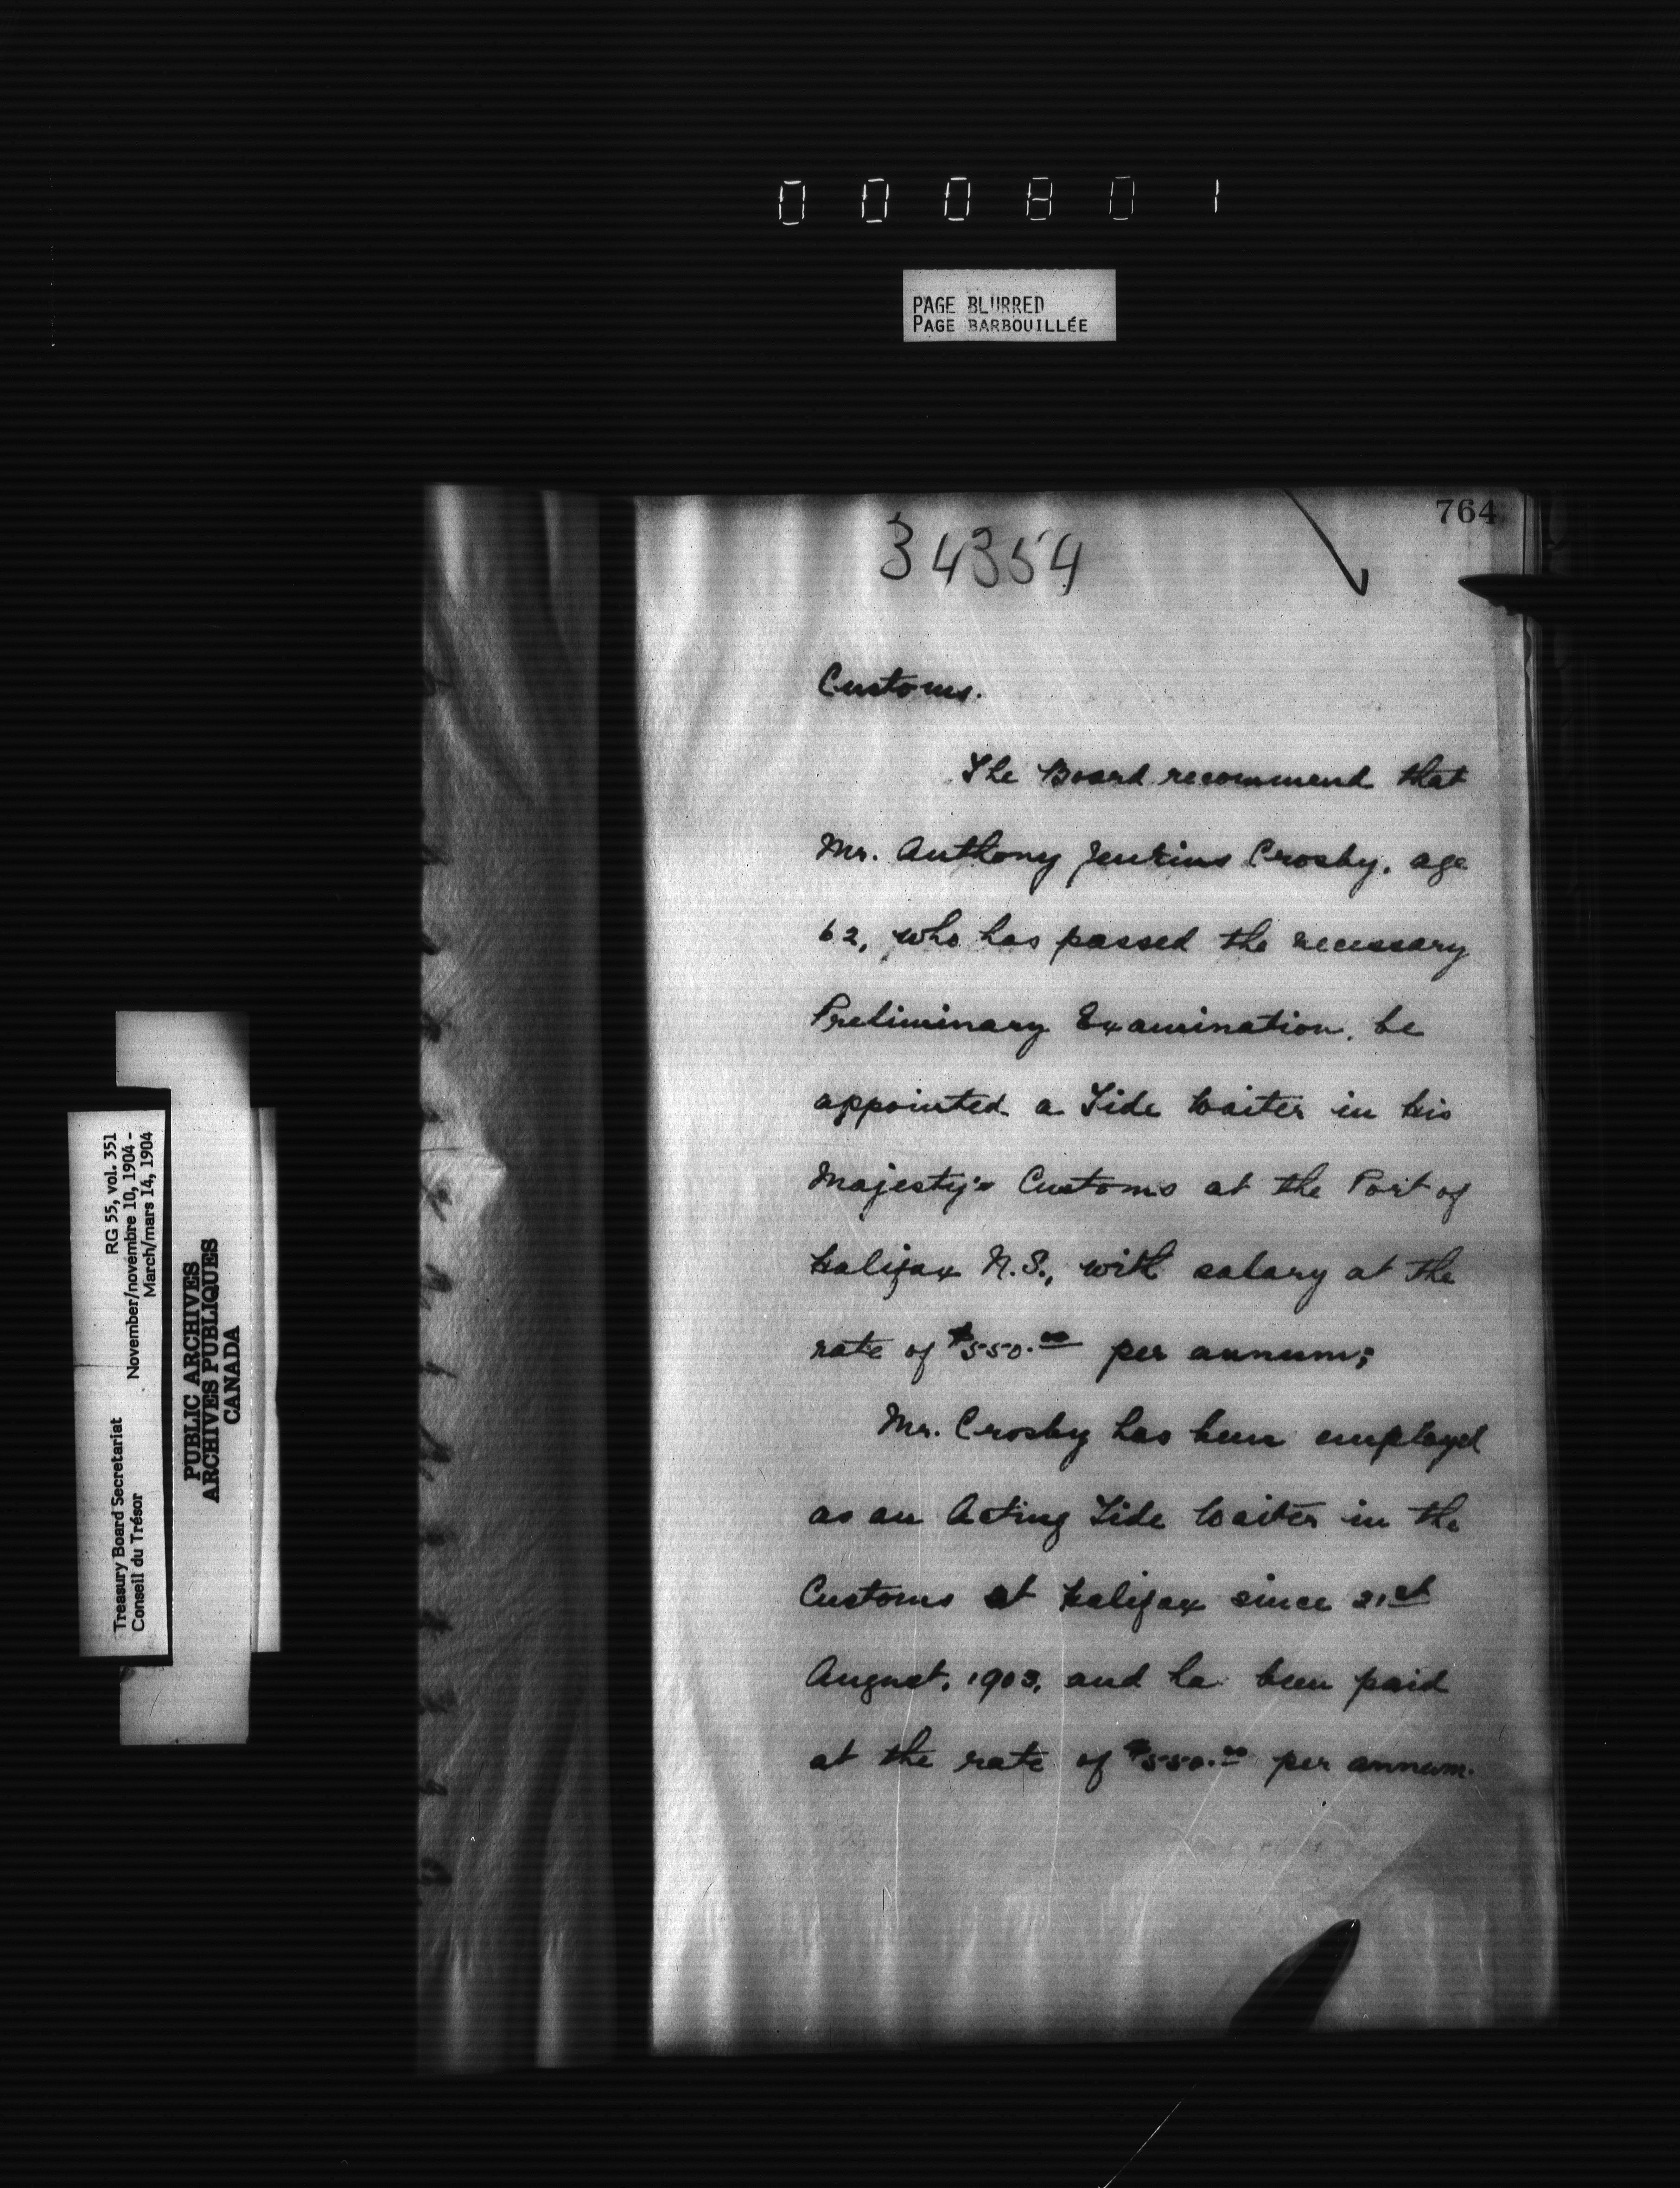 000801
PAGE BLURRED
PAGE BARBOUILLÉE
764
34354
Customs.
The Board recommend that
Mr. Anthony Jenkins Crosby, age
62, who has passed the necessary
Preliminary Examination, be
appointed a Tide Waiter in his
Majesty's Customs at the Port of
Halifax N.S., with salary at the
rate of $550.00 per annum;
Mr. Crosby has been employed
as an Acting Tide Waiter in the
Customs at Halifax since 21st
August, 1903, and ha been paid
at the rate of $550.00 per annum.
Treasury Board Secretariat
Conseil du Trésor
RG 55, vol. 351
November/novembre 10, 1904 -
March/mars 14, 1904
PUBLIC ARCHIVES
ARCHIVES PUBLIQUES
CANADA